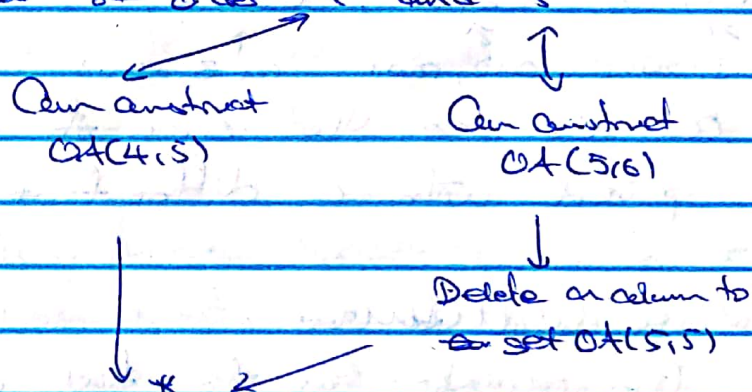 Can construct
OA(4,5)
Can construct
OA(5,6)
Delete a column to
get OA(5,5)
*